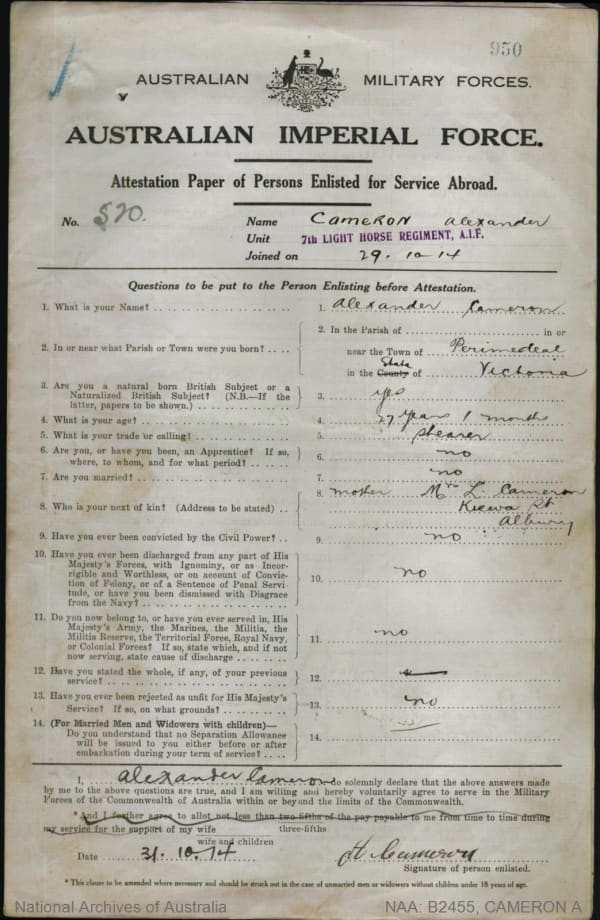 950
AUSTRALIAN MILITARY FORCES.
AUSTRALIAN IMPERIAL FORCE.
Attestation Paper of Persons Enlisted for Service Abroad.
No. 520.
Name Cameron Alexander
Unit 7th LIGHT HORSE REGIMENT, A.I.F.
Joined on 29.10.14
Questions to be put to the Person Enlisting before Attestation.
1. What is your Name? . . . . 1. Alexander Cameron
2. In or near what Parish or Town were you born? . . . .
2. In the Parish of . . . . in or
near the Town of Perimedeal
in the County State of Victoria
3. Are you a natural born British Subject or a
Naturalized British Subject? (N.B.—If the
latter, papers to be shown.) . . . . 3. yes
4. What is your age? . . . . 4. 27 years 1 month
5. What is your trade or calling? . . . . 5. shearer
6. Are you, or have you been, an Apprentice? If so,
where, to whom, and for what period? . . . . 6. no
7. Are you married? . . . . 7. no
8. Who is your next of kin? (Address to be stated) . . 8. mother Mrs L. Cameron
Kiewa St
Albury
9. Have you ever been convicted by the Civil Power? . . 9. no
10. Have you ever been discharged from any part of His
Majesty's Forces, with Ignominy, or as Incor-
rigible and Worthless, or on account of Convic-
tion of Felony, or of a Sentence of Penal Servi-
tude, or have you been dismissed with Disgrace
from the Navy? . . . . 10. no
11. Do you now belong to, or have you ever served in, His
Majesty's Army, the Marines, the Militia, the
Militia Reserve, the Territorial Force, Royal Navy,
or Colonial Forces? If so, state which, and if not
now serving, state cause of discharge . . . . 11. no
12. Have you stated the whole, if any, of your previous
service? . . . . 12.
13. Have you ever been rejected as unfit for His Majesty's
Service? If so, on what grounds? . . . . 13. no
14. (For Married Men and Widowers with children)—
Do you understand that no Separation Allowance
will be issued to you either before or after
embarkation during your term of service? . . . . 14.
I, Alexander Cameron do solemnly declare that the above answers made
by me to the above questions are true, and I am willing and hereby voluntarily agree to serve in the Military
Forces of the Commonwealth of Australia within or beyond the limits of the Commonwealth.
*And I further agree to allot not less than two-fifths of the pay payable to me from time to time during
my service for the support of my wife three-fifths
wife and children
Date 31.10.14 A Cameron
Signature of person enlisted.
* This clause to be amended where necessary and should be struck out in the case of unmarried men or widowers without children under 18 years of age.
National Archives of Australia NAA: B2455, CAMERON A